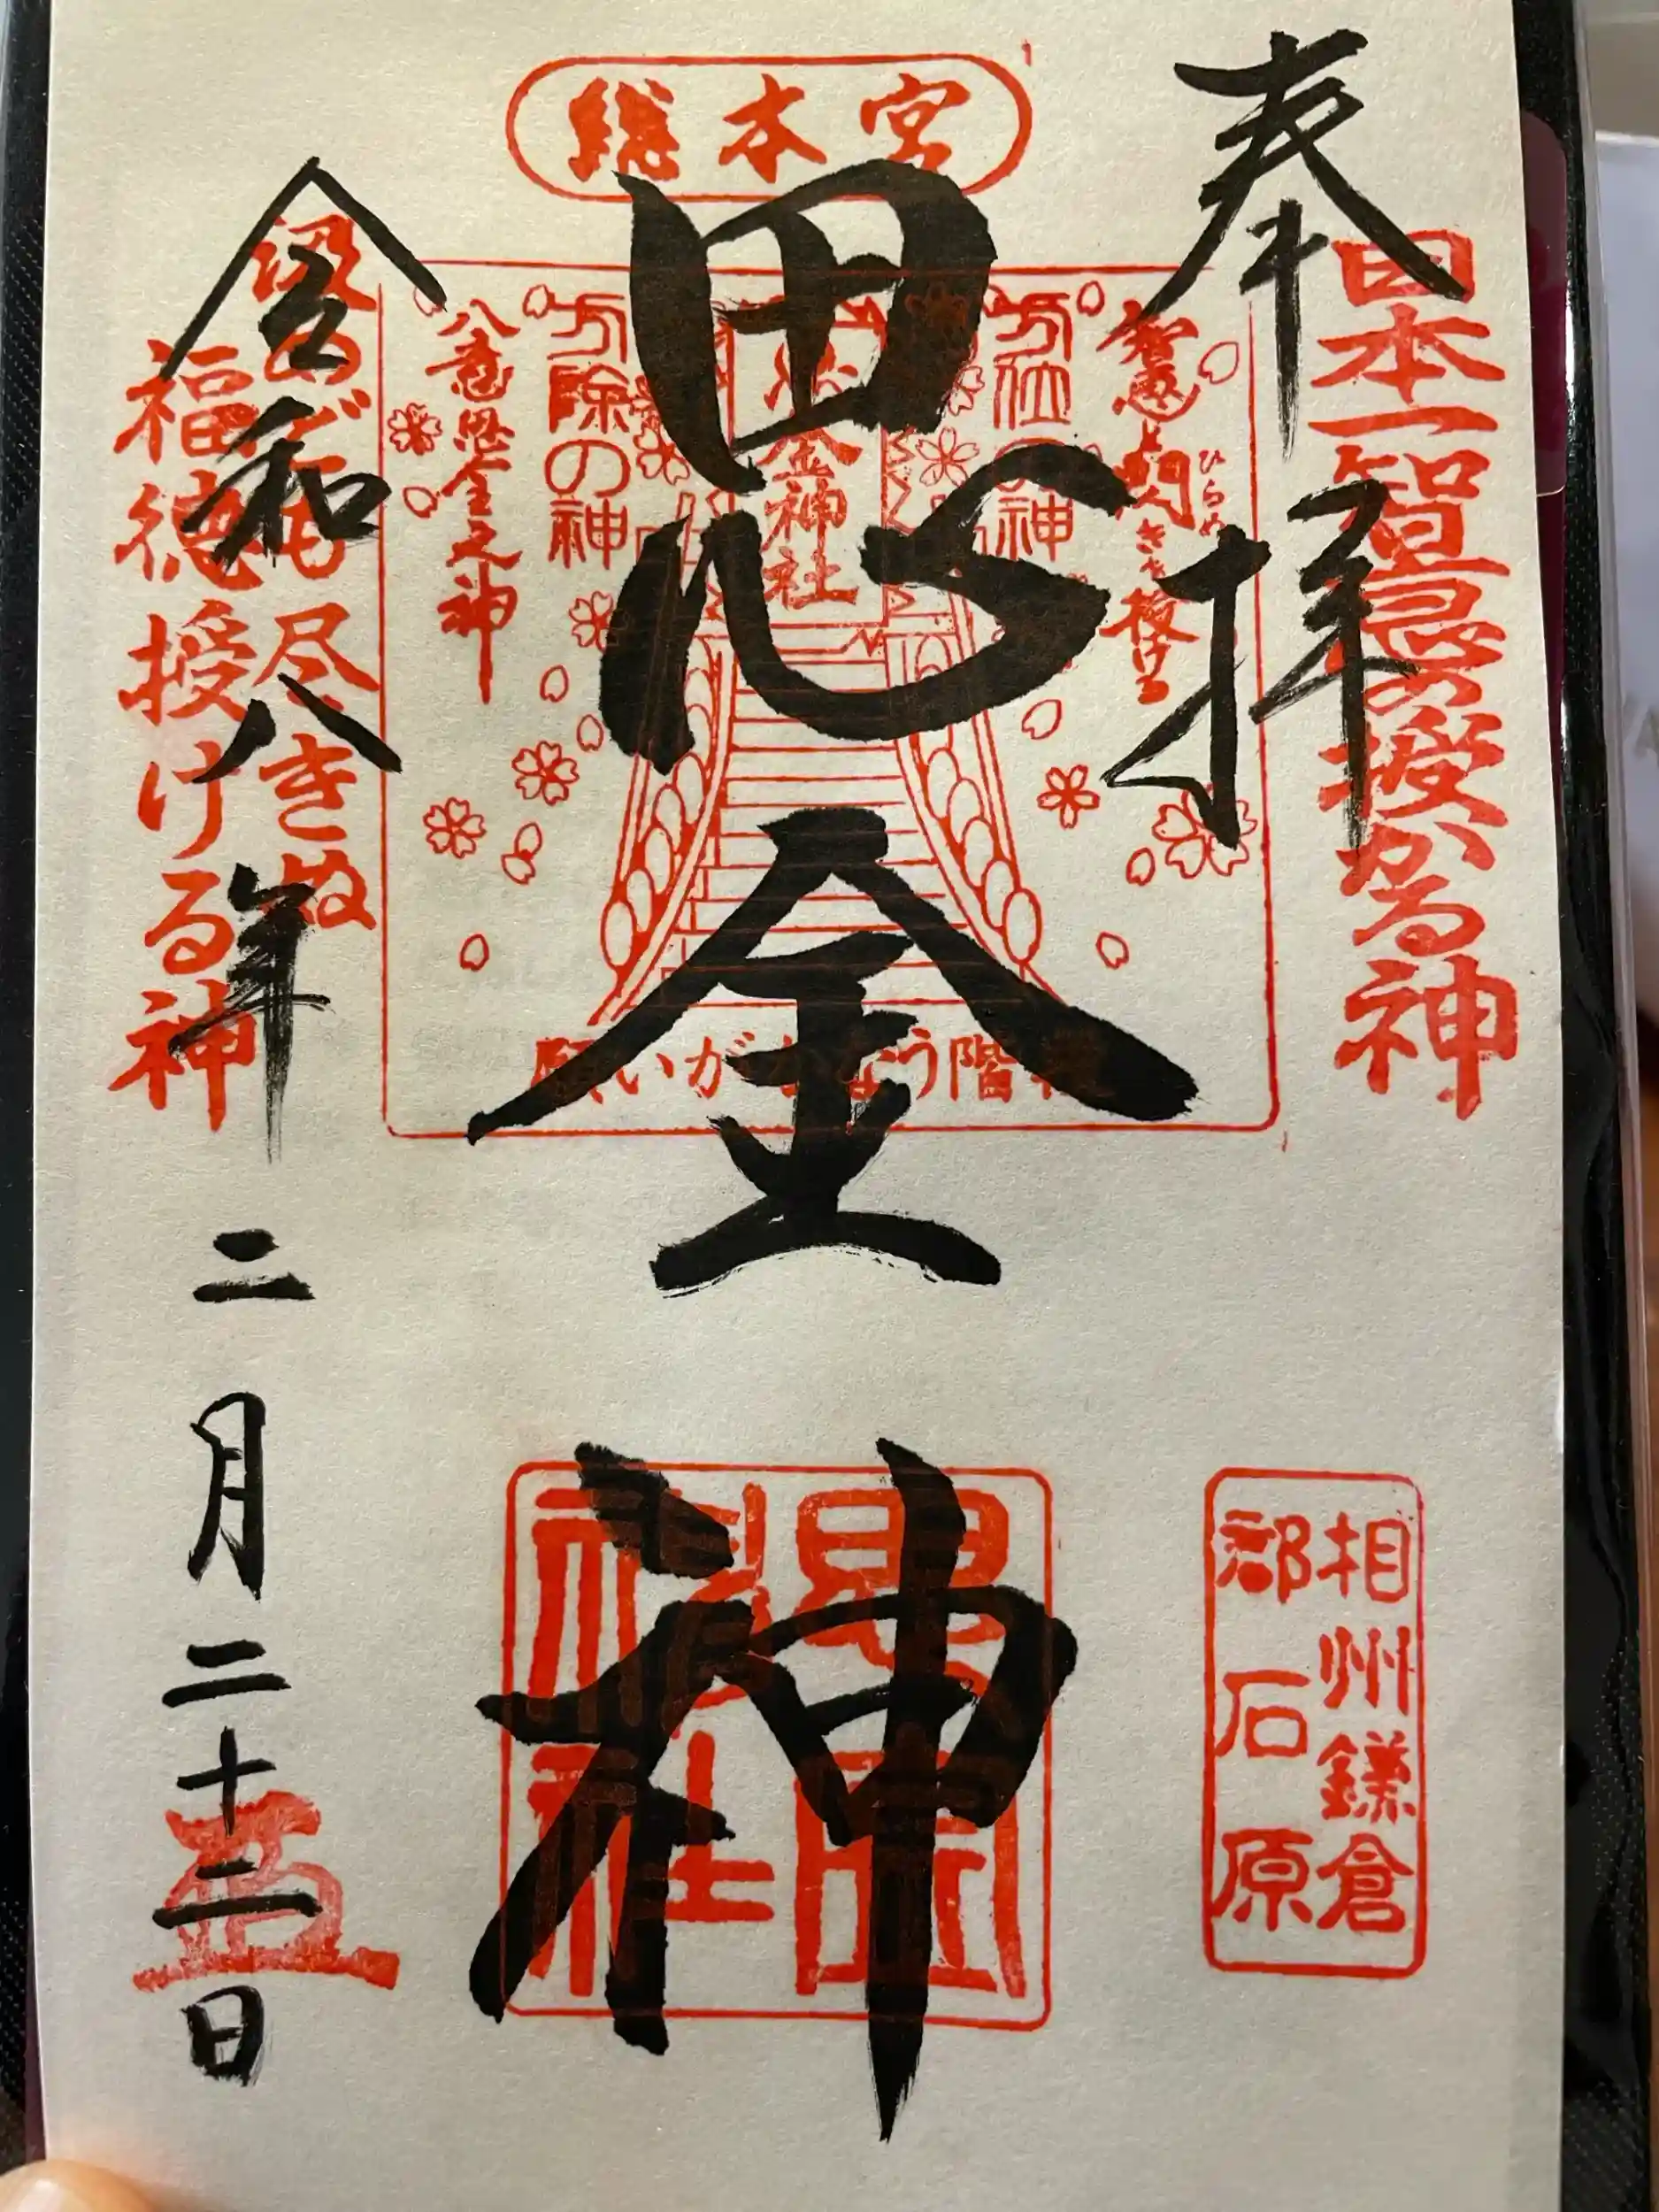 奉拝
日本一智恵の授かる神
総本宮
思金神
智恵と閃きを授ける
ひらめ
方位の神
思金神社
方除の神
八意思金之神
願いがかなう階段
令和八年二月二十二日
汲めども尽きぬ
福徳授ける神
相州鎌倉
郡石原
思金
神社